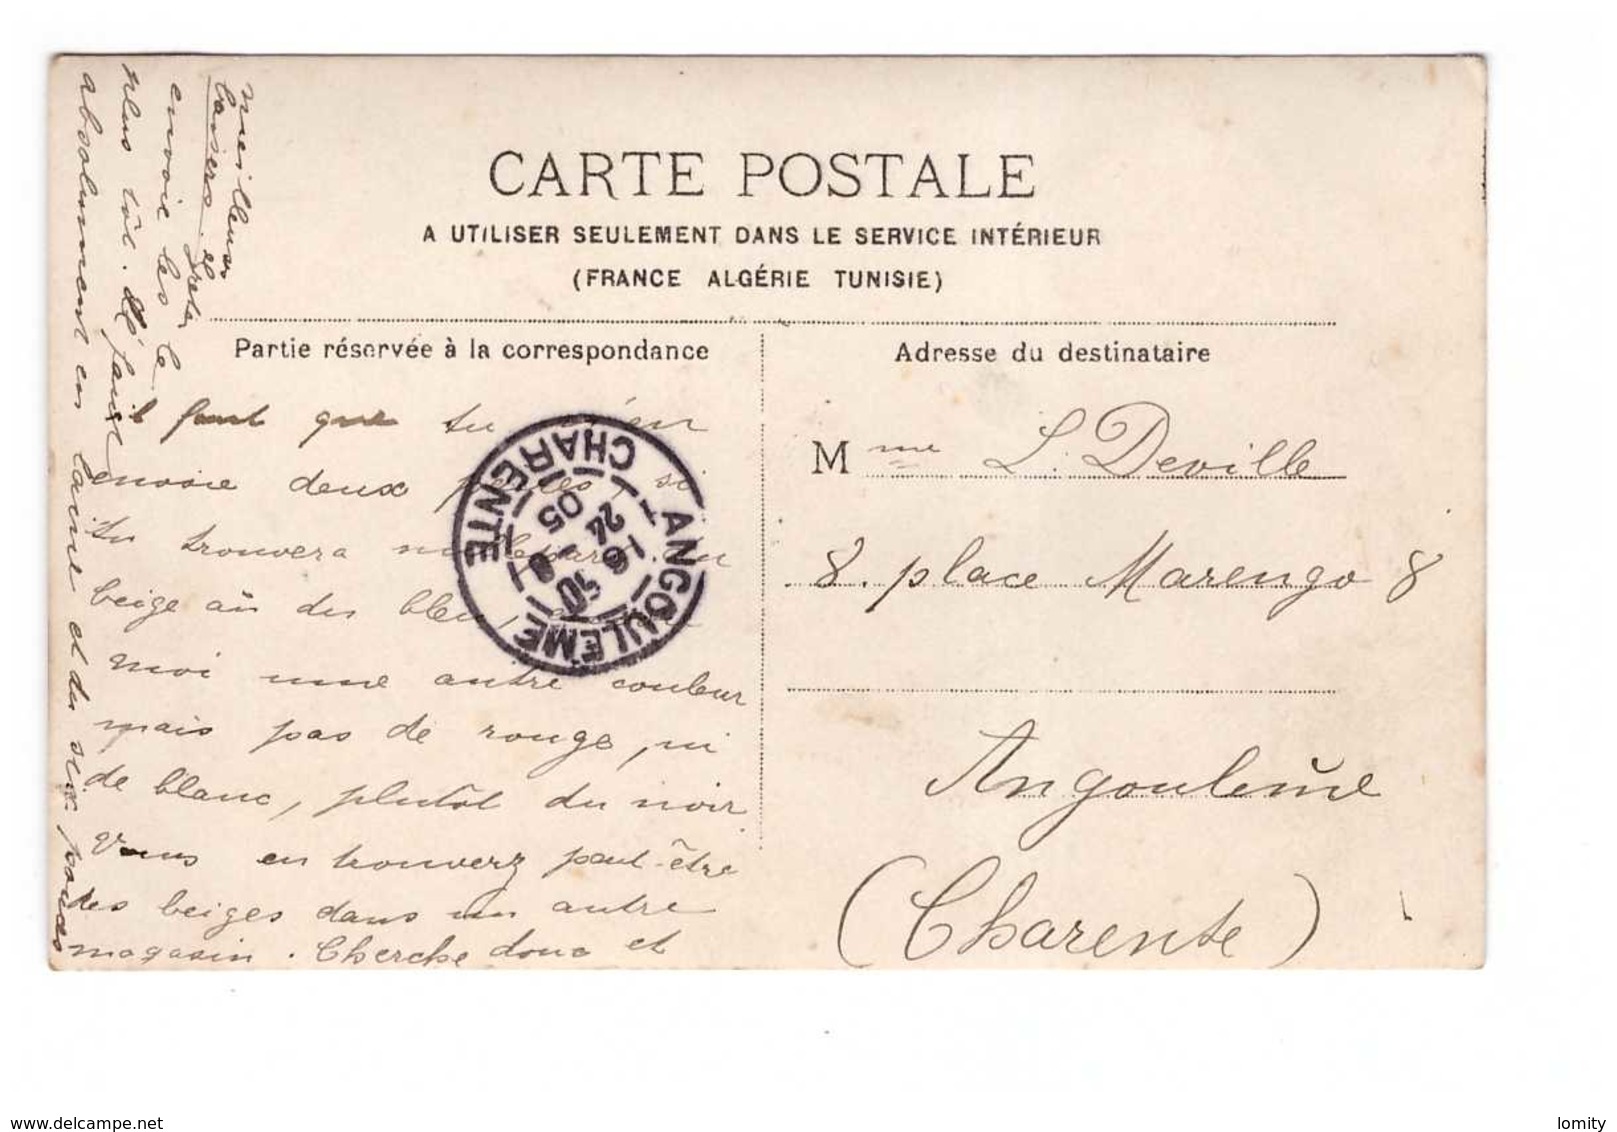 CARTE POSTALE
A UTILISER SEULEMENT DANS LE SERVICE INTÉRIEUR
(FRANCE ALGÉRIE TUNISIE)
Partie réservée à la correspondance
il faut que tu m'en
envoie deux si
tu trouvera
beige ou du bleu,
moi une autre couleur
mais pas de rouge, ni
de blanc, plutôt du noir
Vous en trouverz peut-être
des beiges dans un autre
magasin. Cherche donc et
envoie les le
plus tôt. Il faut
absolument en laine et du seize pouces
meilleurs
baisers
Adresse du destinataire
Mme L. Deville
8. place Marengo 8
Angoulême
(Charente)
ANGOULEME
CHARENTE
16 50
24 - 8
05
delcampe.net
lomity